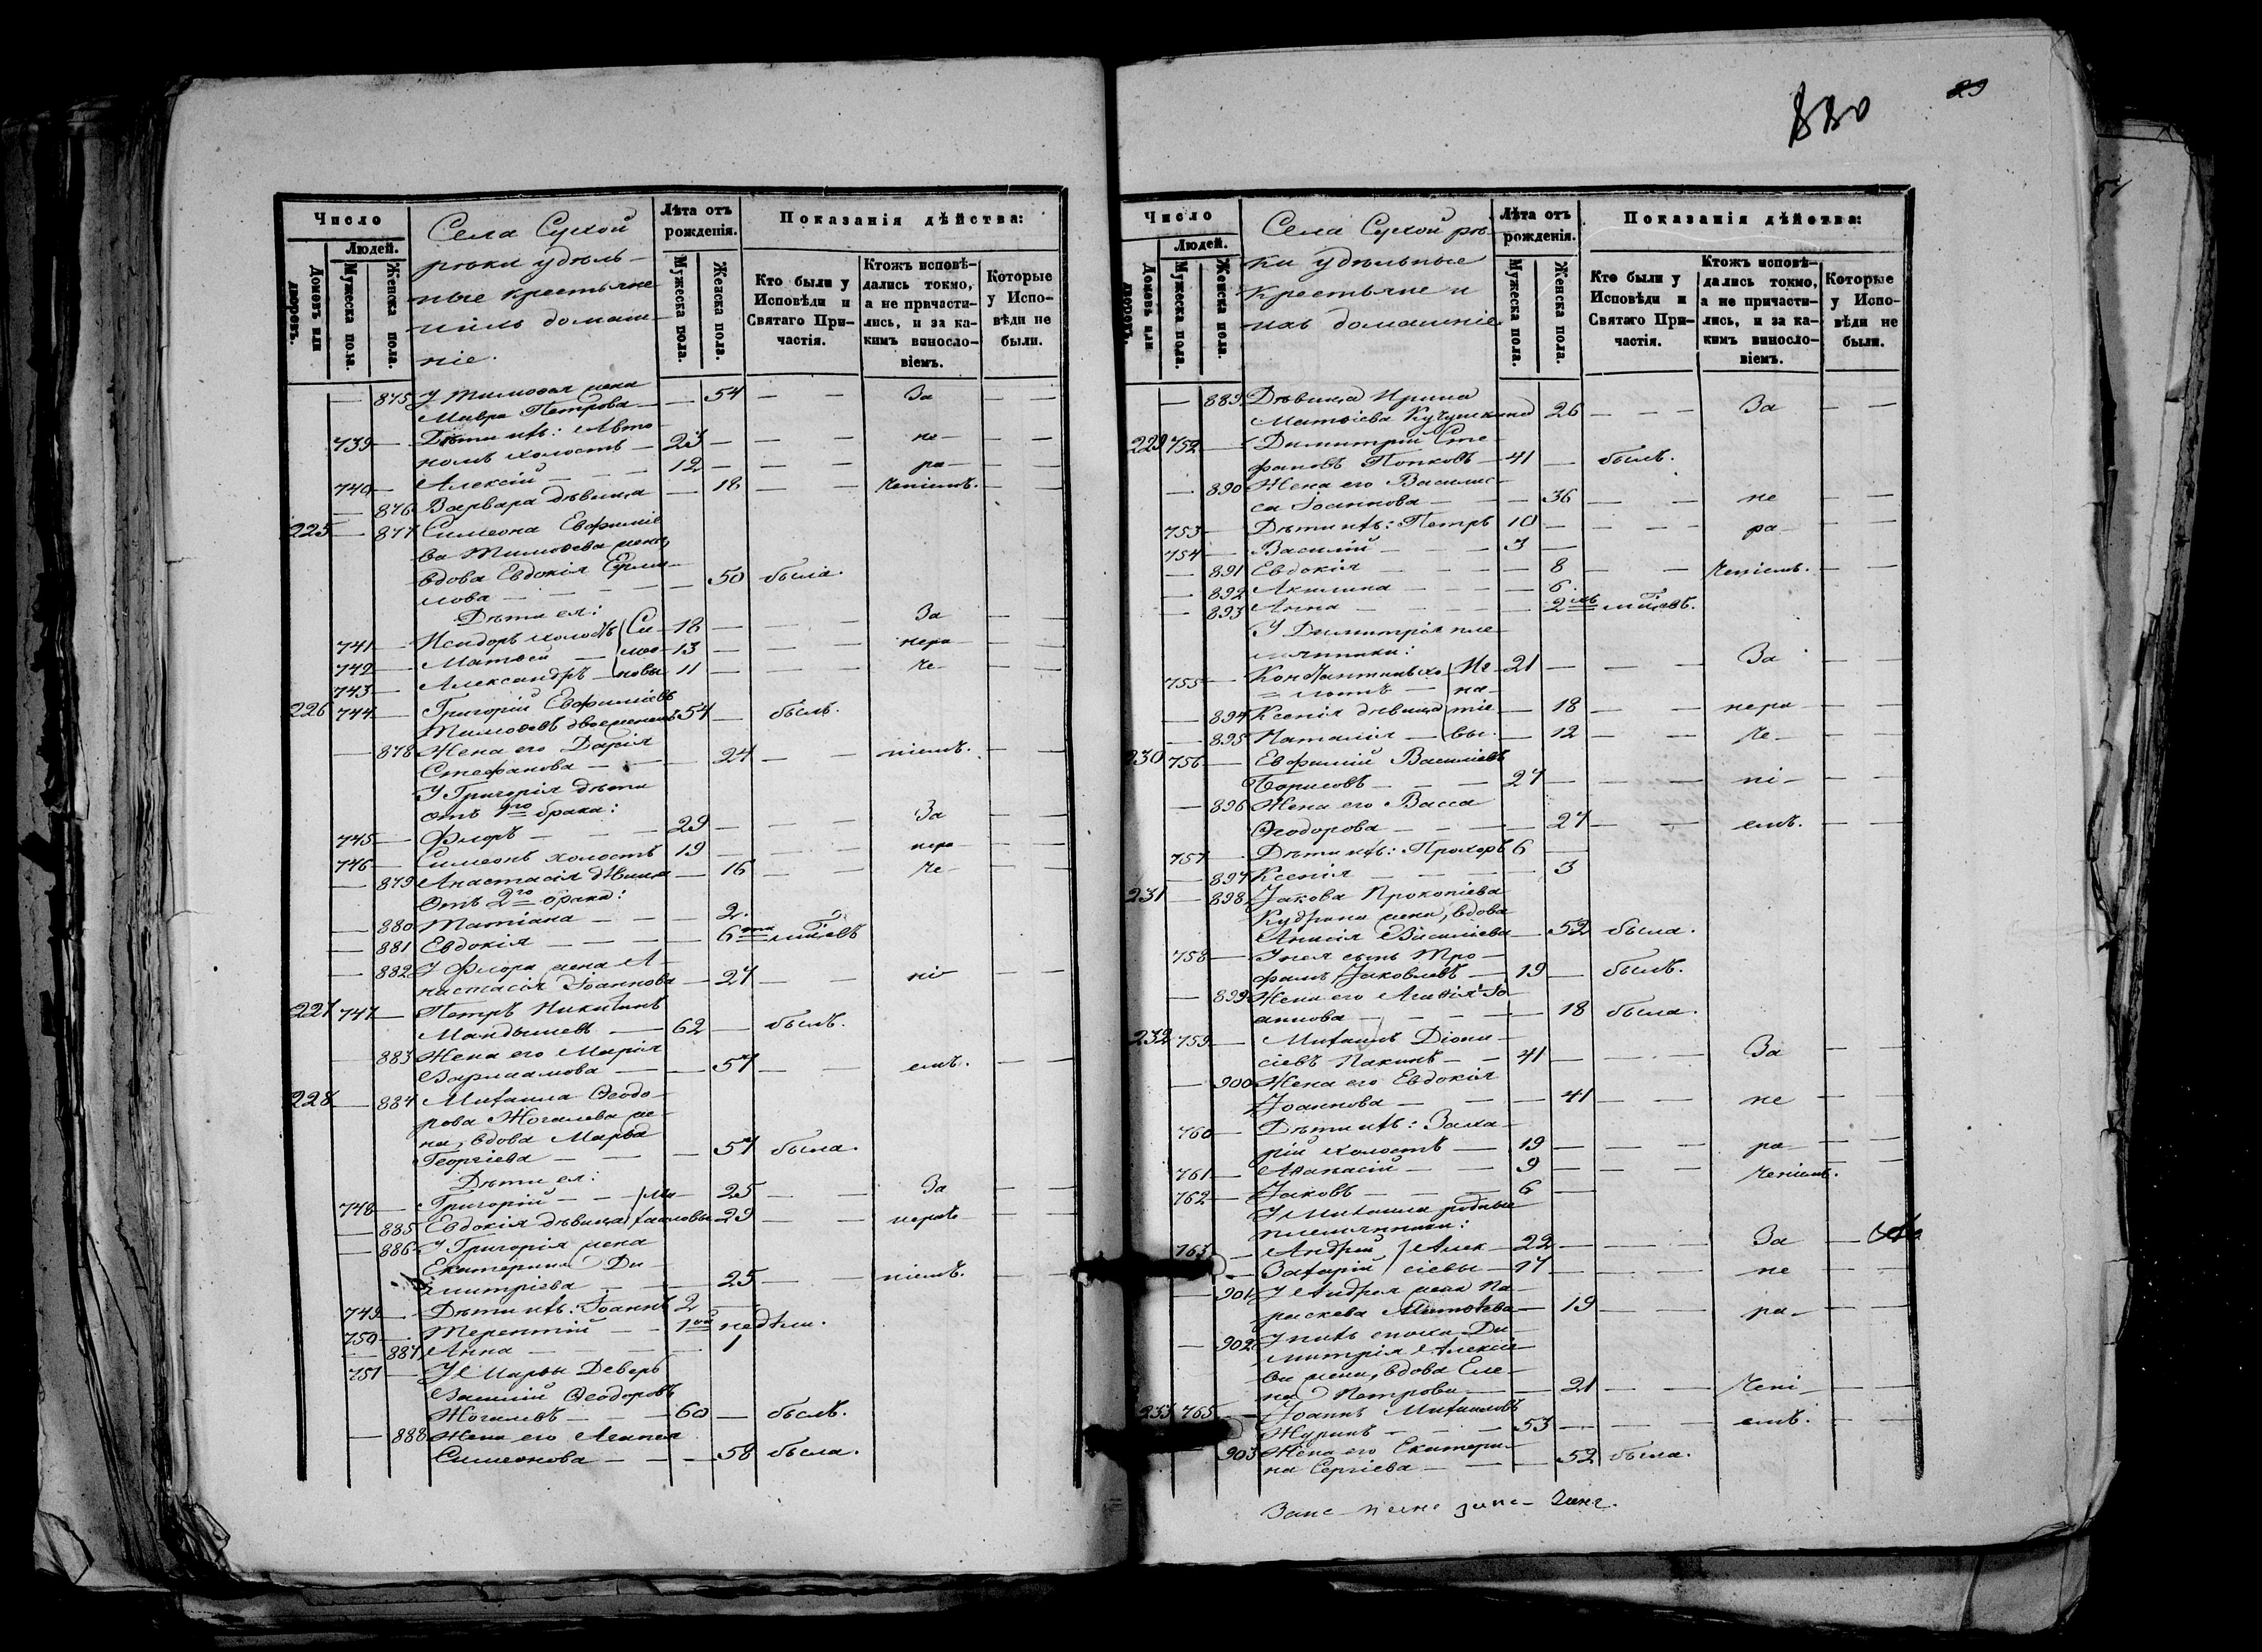 830
29
Число
Людей.
Домовъ или дворовъ.
Мужеска пола.
Женска пола.
Села Сухой
рѣки удѣль-
ные крестьяне
и ихъ домаш-
ніе.
Лѣта отъ рожденія.
Мужеска пола.
Женска пола.
Показанія дѣйства:
Кто были у Исповѣди и Святаго Причастія.
Ктожъ исповѣдались токмо, а не причастились, и за какимъ винословіемъ.
Которые у Исповѣди не были.
— 875 У Тимоѳея жена
Мавра Петрова — — 54 — — За — —
739 — Дѣти ихъ: Авто-
номъ холостъ — 23 — — — не — — —
740 — Алексій — — 12 — — — ра — — —
— 876 Варвара дѣвица — 18 — — ченіемъ. — —
225 — 877 Симеона Евфиміе-
ва Тимоѳева жена,
вдова Евдокія
мова — — — — 50 была.
Дѣти ея:
741 — Исидоръ холостъ Си- 18 — — — За — —
742 — Матѳей — мео- 13 — — — нера — —
743 — Александръ — новы 11 — — — че — — —
226 744 — Григорій Евфиміевъ
Тимоѳевъ двоеженецъ 54 — былъ.
— 878 Жена его Дарія
Стефанова — — — 24 — — ніемъ. — —
У Григорія дѣти
отъ 1го брака:
745 — Флоръ — — — 29 — — — За — —
746 — Симеонъ холостъ 19 — — — нера — —
— 879 Анастасія дѣвица — 16 — — че — — —
Отъ 2го брака:
— 880 Татіана — — — 2.
— 881 Евдокія — — — — 6ти мѣсяцевъ
— 882 У Флора жена А-
настасія Іоаннова — 27 — — ні — —
227 747 — Петръ Никитинъ
Мандышевъ — 62 — былъ.
— 883 Жена его Марія
Варлаамова — — — 57 — — емъ. — —
228 — 884 Михаила Ѳеодо-
рова Жогалева же-
на, вдова Марѳа
Георгіева — — — 57 была.
Дѣти ея:
748 — Григорій — — Ми- 25 — — За — —
— 885 Евдокія дѣвица хаиловы 29 — — нера — —
— 886 У Григорія жена
Екатерина Ди-
митріева — — — 25 — — ніемъ. — —
749 — Дѣти ихъ: Іоаннъ 2 —
750 — Терентій — — 1ой недѣли.
— 887 Анна — — — — 1
751 — У Марѳы деверь
Василій Ѳеодоровъ
Жогалевъ — — — 60 — былъ.
— 888 Жена его Агапія
Симеонова — — — 58 была.
Число
Людей.
Домовъ или дворовъ.
Мужеска пола.
Женска пола.
Села Сухой рѣ-
ки удѣльные
крестьяне и
ихъ домашніе
Лѣта отъ рожденія.
Мужеска пола.
Женска пола.
Показанія дѣйства:
Кто были у Исповѣди и Святаго Причастія.
Ктожъ исповѣдались токмо, а не причастились, и за какимъ винословіемъ.
Которые у Исповѣди не были.
— 889 Дѣвица Ирина
Матѳіева 26 — — — За — —
229 752 — Димитрій Сте-
фановъ Попковъ — 41 — былъ.
— 890 Жена его Васили-
са Іоаннова — — — 36 — — не — —
753 — Дѣти ихъ: Петръ 10 — — — ра — — —
754 — Василій — — — 3 —
— 891 Евдокія — — — — 8 — — ченіемъ. — —
— 892 Акилина — — — — 6.
— 893 Анна — — — — 2хъ мѣсяцевъ.
У Димитрія пле-
мянники:
755 — Константинъ хо- Иг- 21 — — — За — —
лостъ — на-
— 894 Ксенія дѣвица тіе- 18 — — нера — —
— 895 Наталія — вы. — 12 — — че — — —
230 756 — Евфимій Василіевъ
Борисовъ — — — 27 — — — ні — — —
— 896 Жена его Васса
Ѳеодорова — — — 27 — — емъ. — —
757 — Дѣти ихъ: Прохоръ 6 —
— 897 Ксенія — — — — 3
231 — 898 Іакова Прокопіева
Кудрина жена, вдова
Анисія Василіева — 52 была.
758 — У нея сынъ Тро-
фимъ Іаковлевъ — 19 — былъ.
— 899 Жена его Агаѳія Іо-
аннова — — — — 18 была.
232 759 — Михаилъ Діони-
сіевъ Пакинъ — — 41 — — — За — —
— 900 Жена его Евдокія
Іоаннова — — — 41 — — не — —
760 — Дѣти ихъ: Заха-
рій холостъ — 19 — — — ра — — —
761 — Аѳанасій — — 9 — — — ченіемъ. —
762 — Іаковъ — — — 6 —
У Михаила родные
племянники:
763 — Андрей Алек- 22 — — — За —
— Захарій сіевы — 17 — — — не — —
— 901 У Андрея жена Па-
раскева — 19 — — ра — — —
— 902 У нихъ сноха Ди-
митрія Алексіе-
ва жена, вдова Еле-
на Петрова — — 21 — — чені — — —
233 765 — Іоаннъ Михаиловъ
Журинъ — — — 53 — — — емъ. — —
903 Жена его Екатери-
на Сергіева — — — 52 была.